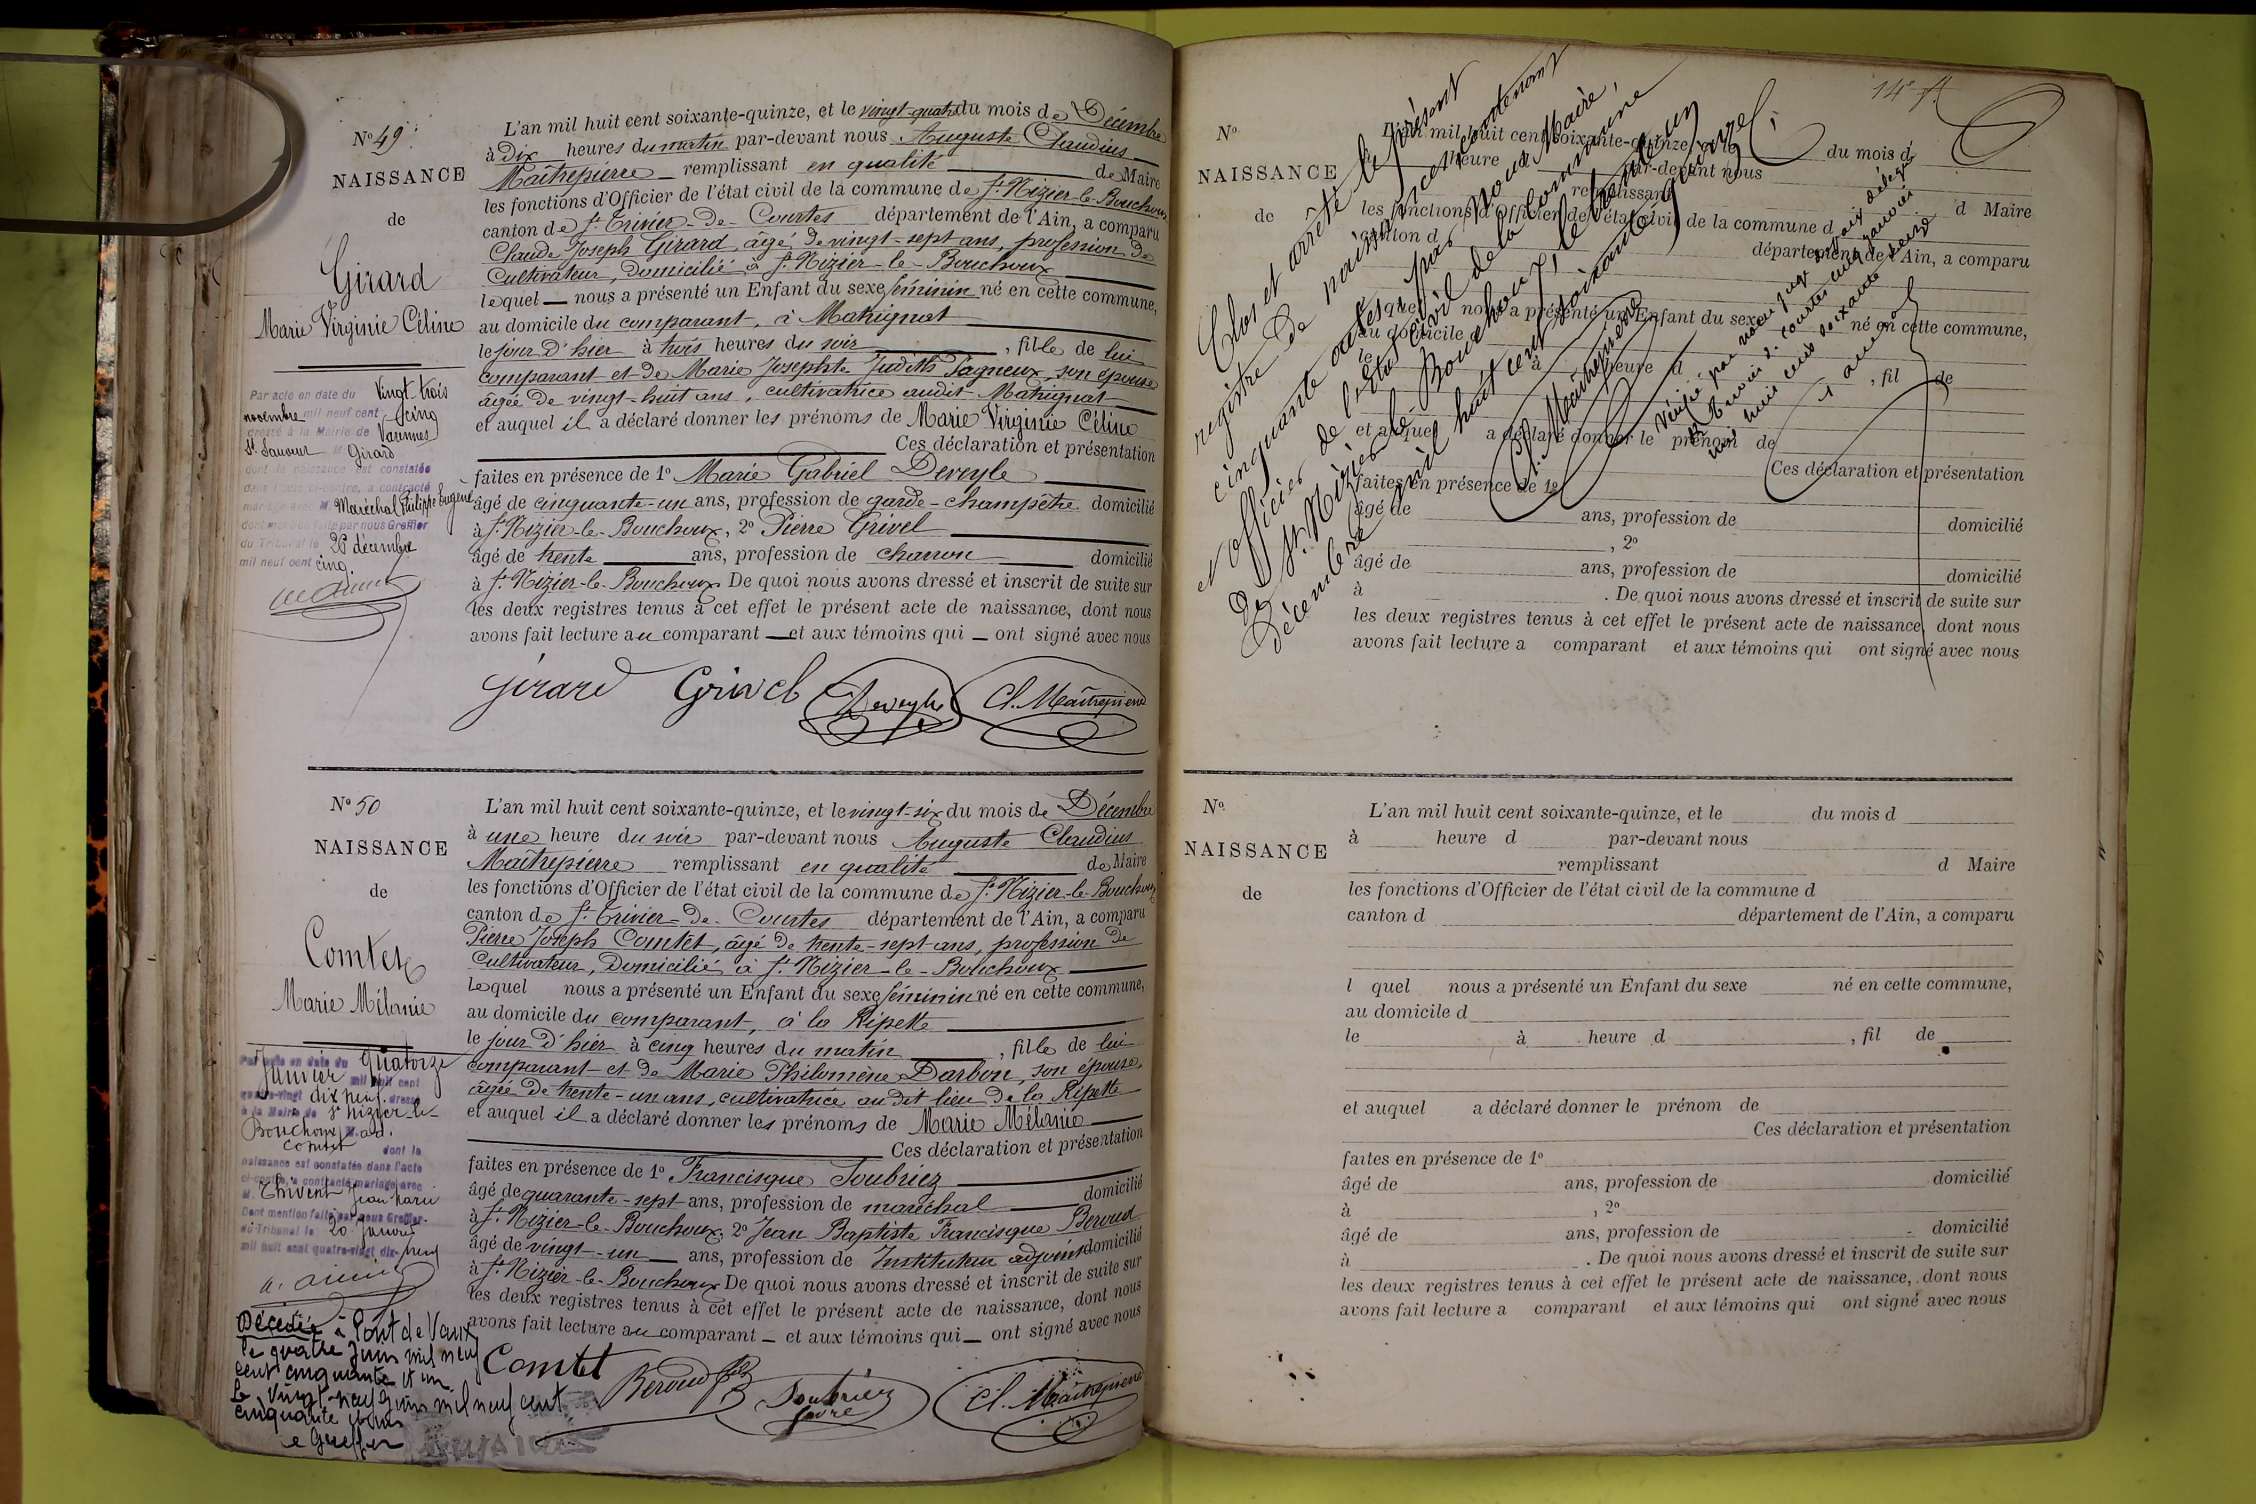 N° 49
NAISSANCE
de
Girard
Marie Virginie Céline
Par acte en date du Vingt-trois
novembre mil neuf cent cinq
dressé à la Mairie de Varennes
St Sauveur M Girard
dont la naissance est constatée
dans l'acte ci-contre, a contracté
mariage avec M. Maréchal Philippe Eugène
dont mention faite par nous Greffier
du Tribunal le 26 décembre
mil neuf cent cinq.
L'an mil huit cent soixante-quinze, et le vingt-quatre du mois de Décembre
à Dix heures du matin par-devant nous Auguste Claudius
Maîtrepierre remplissant en qualité de Maire
les fonctions d'Officier de l'état civil de la commune de St Nizier-le-Bouchoux
canton de St Trivier-de-Courtes département de l'Ain, a comparu
Claude Joseph Girard, âgé de vingt-sept ans, profession de
Cultivateur, domicilié à St Nizier-le-Bouchoux
lequel nous a présenté un Enfant du sexe féminin né en cette commune,
au domicile du comparant, à Matrignat
le jour d'hier à trois heures du soir, fille de lui
comparant et de Marie Josephte Judith Pagneux, son épouse
âgée de vingt-huit ans, cultivatrice audit Matrignat
et auquel il a déclaré donner les prénoms de Marie Virginie Céline
Ces déclaration et présentation
faites en présence de 1° Marie Gabriel Deveyle
âgé de cinquante-un ans, profession de garde-champêtre domicilié
à St Nizier-le-Bouchoux, 2° Pierre Grivel
âgé de trente ans, profession de charron domicilié
à St Nizier-le-Bouchoux De quoi nous avons dressé et inscrit de suite sur
les deux registres tenus à cet effet le présent acte de naissance, dont nous
avons fait lecture au comparant et aux témoins qui ont signé avec nous
Girard Grivel Deveyle Cl. Maîtrepierre
N° 50
NAISSANCE
de
Comtet
Marie Mélanie
Par acte en date du Quatorze
Janvier mil huit cent
quatre-vingt dix neuf dressé
à la Mairie de St Nizier-le-
Bouchoux M. ad.
Comtet dont la
naissance est constatée dans l'acte
ci-contre, a contracté mariage avec
M. Thivent Jean Marie
Dont mention faite par nous Greffier
du Tribunal le 20 Janvier
mil huit cent quatre-vingt dix-neuf
Décédée à Pont de Vaux
le quatre Juin mil neuf
cent cinquante et un.
Le vingt-neuf Juin mil neuf cent
cinquante et un
Le Greffier
L'an mil huit cent soixante-quinze, et le vingt-six du mois de Décembre
à une heure du soir par-devant nous Auguste Claudius
Maîtrepierre remplissant en qualité de Maire
les fonctions d'Officier de l'état civil de la commune de St Nizier-le-Bouchoux
canton de St Trivier-de-Courtes département de l'Ain, a comparu
Pierre Joseph Comtet, âgé de trente-sept ans, profession de
Cultivateur, Domicilié à St Nizier-le-Bouchoux
lequel nous a présenté un Enfant du sexe féminin né en cette commune,
au domicile du comparant, à la Ripette
le jour d'hier à cinq heures du matin, fille de lui
comparant et de Marie Philomène Darbon, son épouse,
âgée de trente-un ans, cultivatrice au dit lieu de la Ripette
et auquel il a déclaré donner les prénoms de Marie Mélanie
Ces déclaration et présentation
faites en présence de 1° Francisque Soubriez
âgé de quarante-sept ans, profession de maréchal domicilié
à St Nizier-le-Bouchoux, 2° Jean Baptiste Francisque Beroud
âgé de vingt-un ans, profession de Instituteur adjoint domicilié
à St Nizier-le-Bouchoux De quoi nous avons dressé et inscrit de suite sur
les deux registres tenus à cet effet le présent acte de naissance, dont nous
avons fait lecture au comparant et aux témoins qui ont signé avec nous
Comtet Beroud fils Soubriez Cl. Maîtrepierre
N°
NAISSANCE
de
L'an mil huit cent soixante-quinze, et le du mois d
à heure d par-devant nous
remplissant d Maire
les fonctions d'Officier de l'état civil de la commune d
canton d département de l'Ain, a comparu
lequel nous a présenté un Enfant du sexe né en cette commune,
au domicile d
le à heure d , fil de
et auquel a déclaré donner le prénom de
Ces déclaration et présentation
faites en présence de 1°
âgé de ans, profession de domicilié
, 2°
âgé de ans, profession de domicilié
à . De quoi nous avons dressé et inscrit de suite sur
les deux registres tenus à cet effet le présent acte de naissance, dont nous
avons fait lecture a comparant et aux témoins qui ont signé avec nous
Clos et arrêté le présent
registre de naissances contenant
cinquante actes par Nous Maire,
et officier de l'état civil de la commune
de St Nizier-le-Bouchoux, le trente un
Décembre mil huit cent soixante quinze.
Cl. Maîtrepierre
Vérifié par nous juge de paix délégué
St Trivier de Courtes cinq janvier
mil huit cent soixante seize
N°
NAISSANCE
de
L'an mil huit cent soixante-quinze, et le du mois d
à heure d par-devant nous
remplissant d Maire
les fonctions d'Officier de l'état civil de la commune d
canton d département de l'Ain, a comparu
l quel nous a présenté un Enfant du sexe né en cette commune,
au domicile d
le à heure d , fil de
et auquel a déclaré donner le prénom de
Ces déclaration et présentation
faites en présence de 1°
âgé de ans, profession de domicilié
à , 2°
âgé de ans, profession de domicilié
à . De quoi nous avons dressé et inscrit de suite sur
les deux registres tenus à cet effet le présent acte de naissance, dont nous
avons fait lecture a comparant et aux témoins qui ont signé avec nous